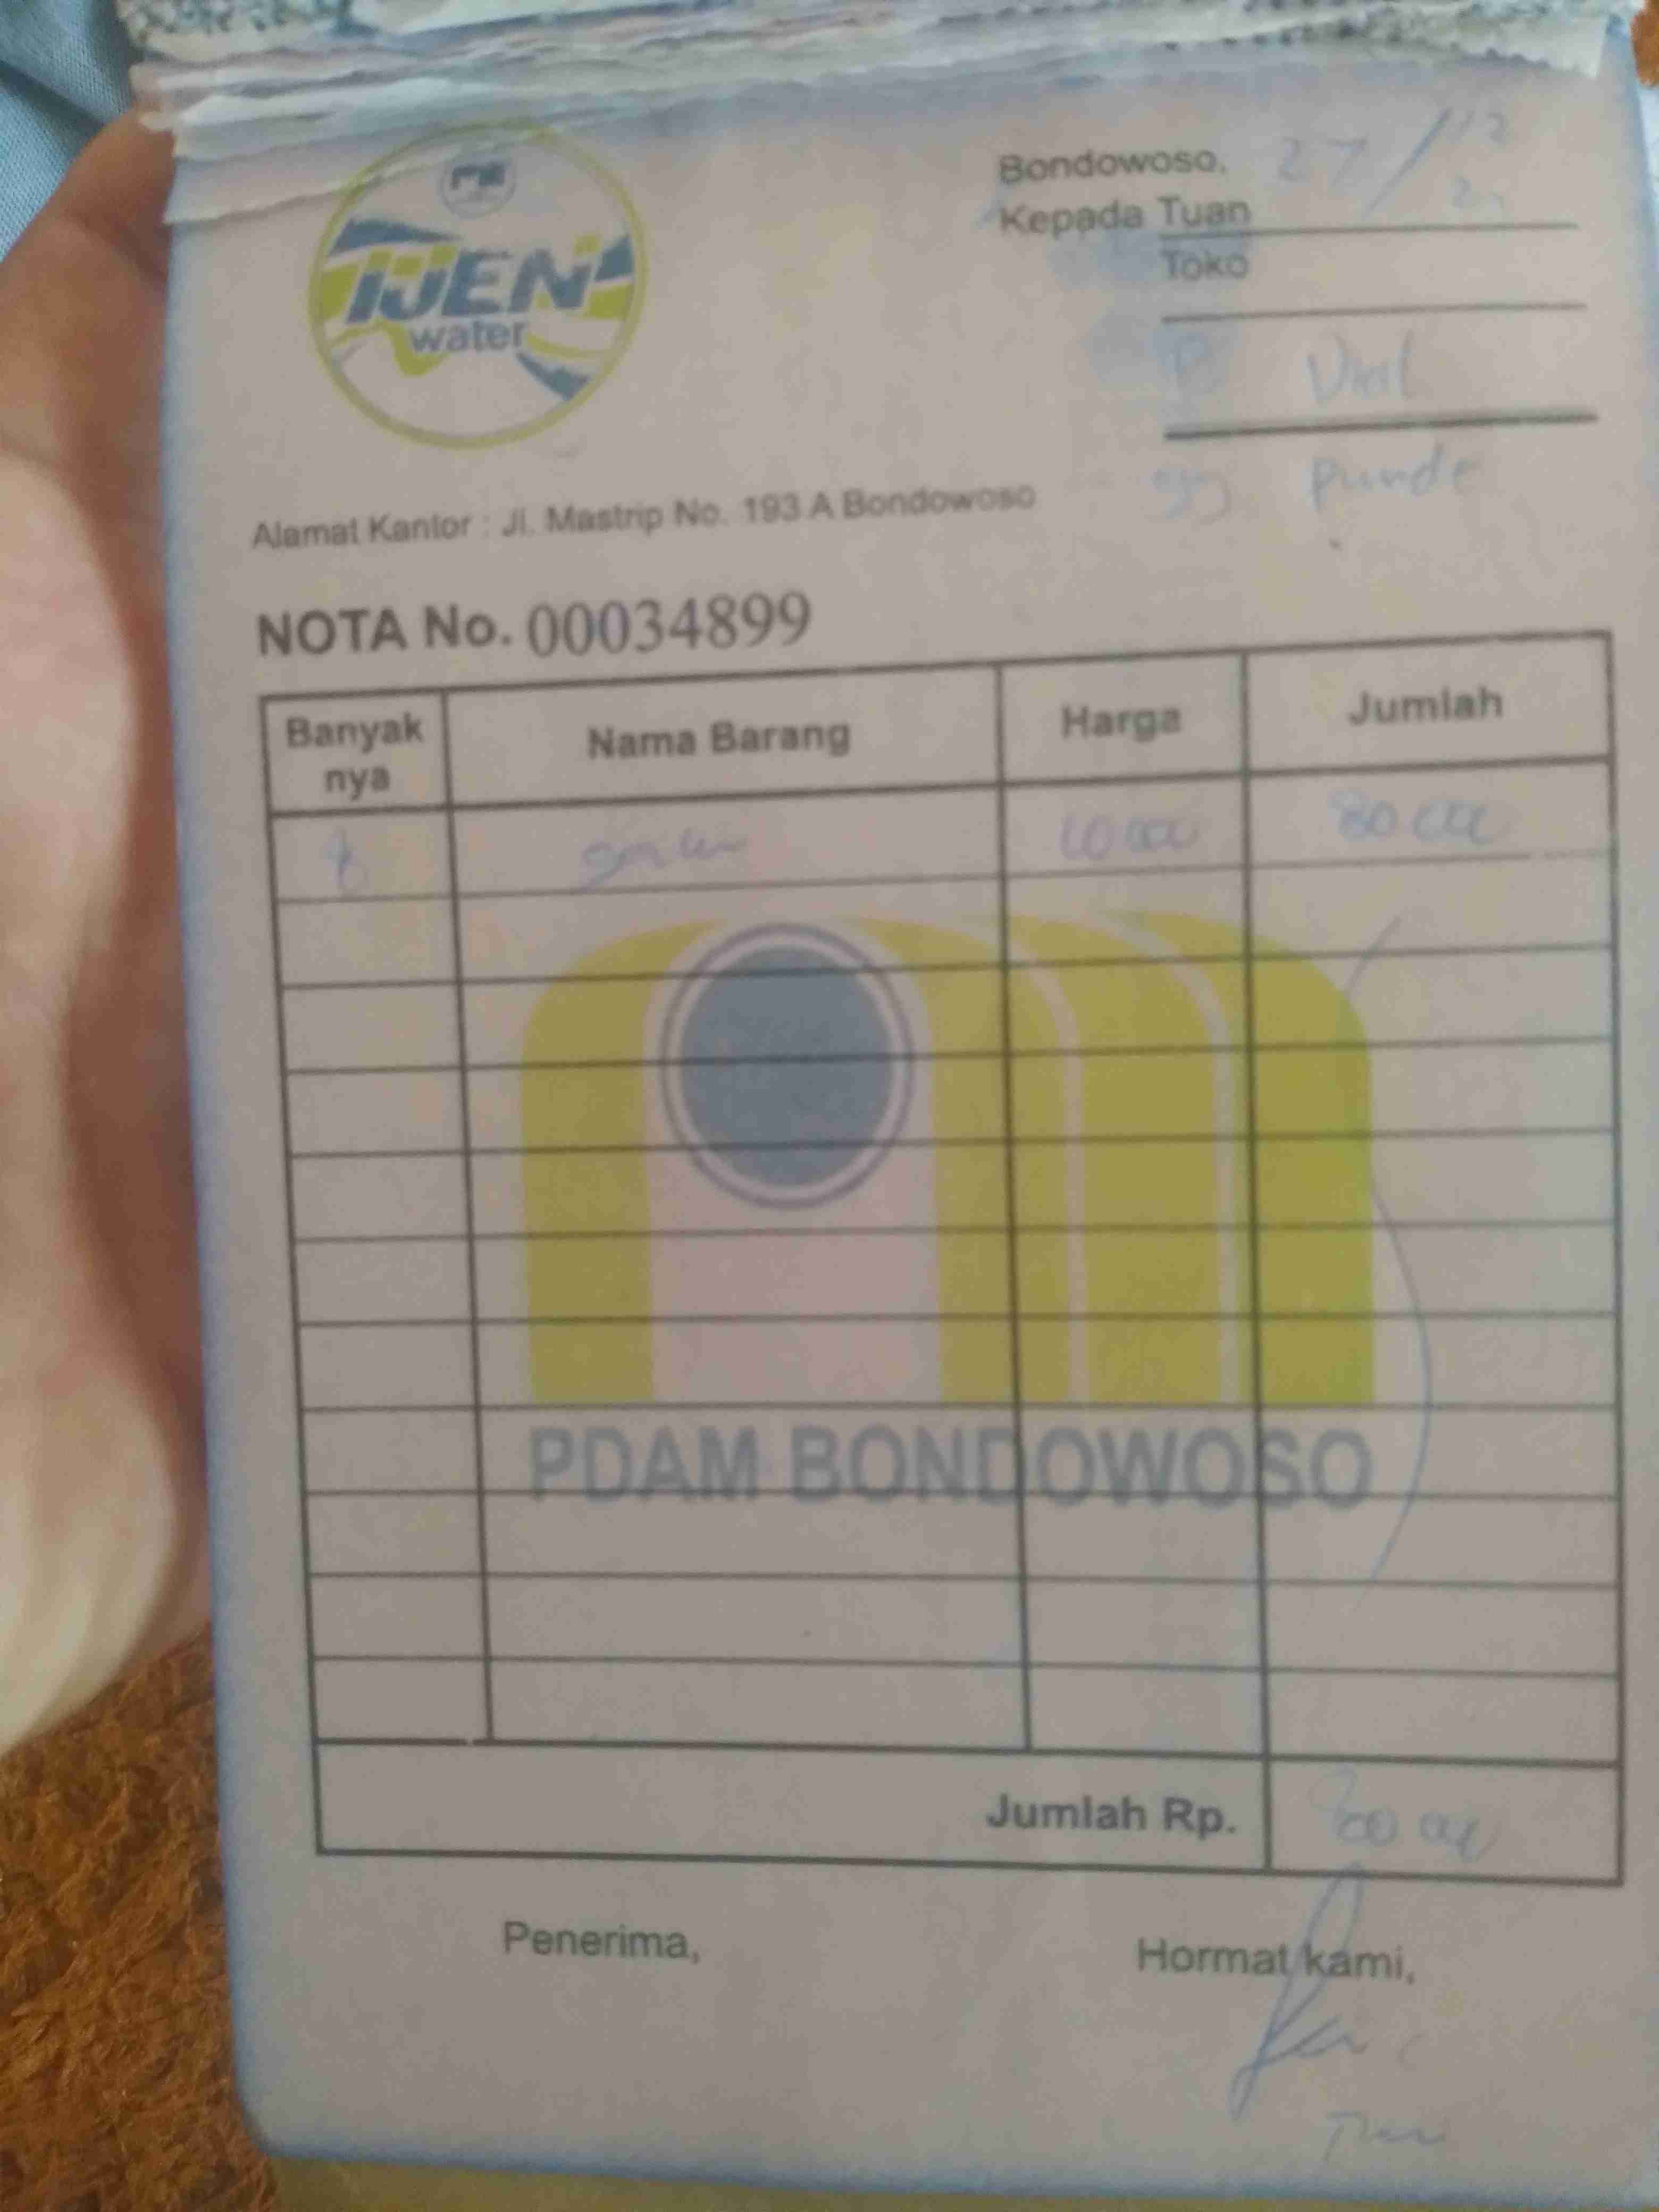 IJEN
water
Bondowoso, 27/12
Kepada Tuan
Toko
P
gg punde
Alamat Kantor : Jl. Mastrip No. 193 A Bondowoso
NOTA No. 00034899
Banyak nya Nama Barang Harga Jumlah
8 10 000 80 000
PDAM BONDOWOSO
Jumlah Rp. 80 000
Penerima, Hormat kami,